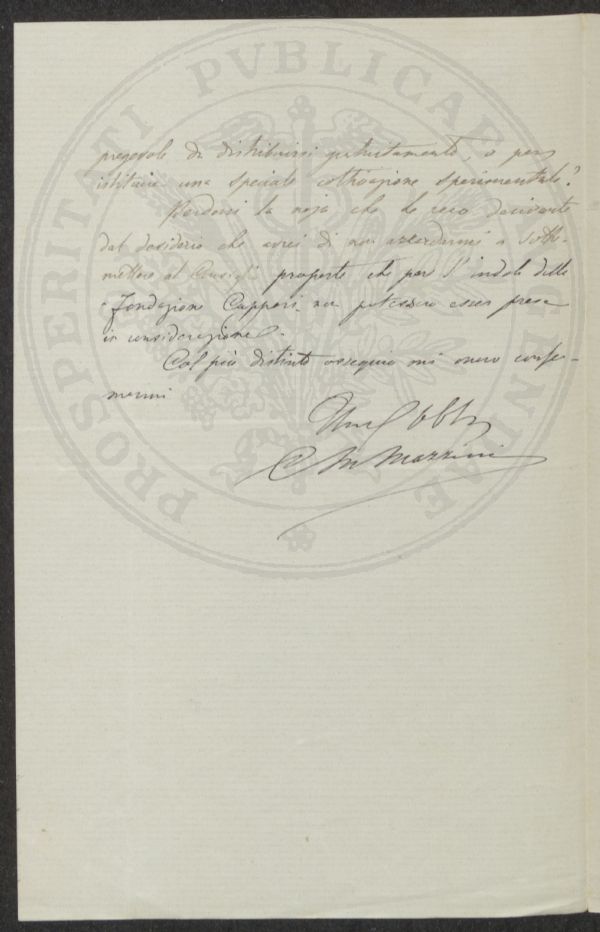 PROSPERITATI PVBLICAE AVGENDAE
pregevole da distribuirsi gratuitamente, o per
istituire una speciale coltivazione sperimentale?
Perdoni la noja che le reco
dal desiderio che avrei di non azzardarmi a sotto-
mettere al Consigli proposte che per l'indole della
Fondazione Cagnoni non potessero esser prese
in considerazione.
Col più distinto ossequio mi onoro confer-
marmi
Mazzini